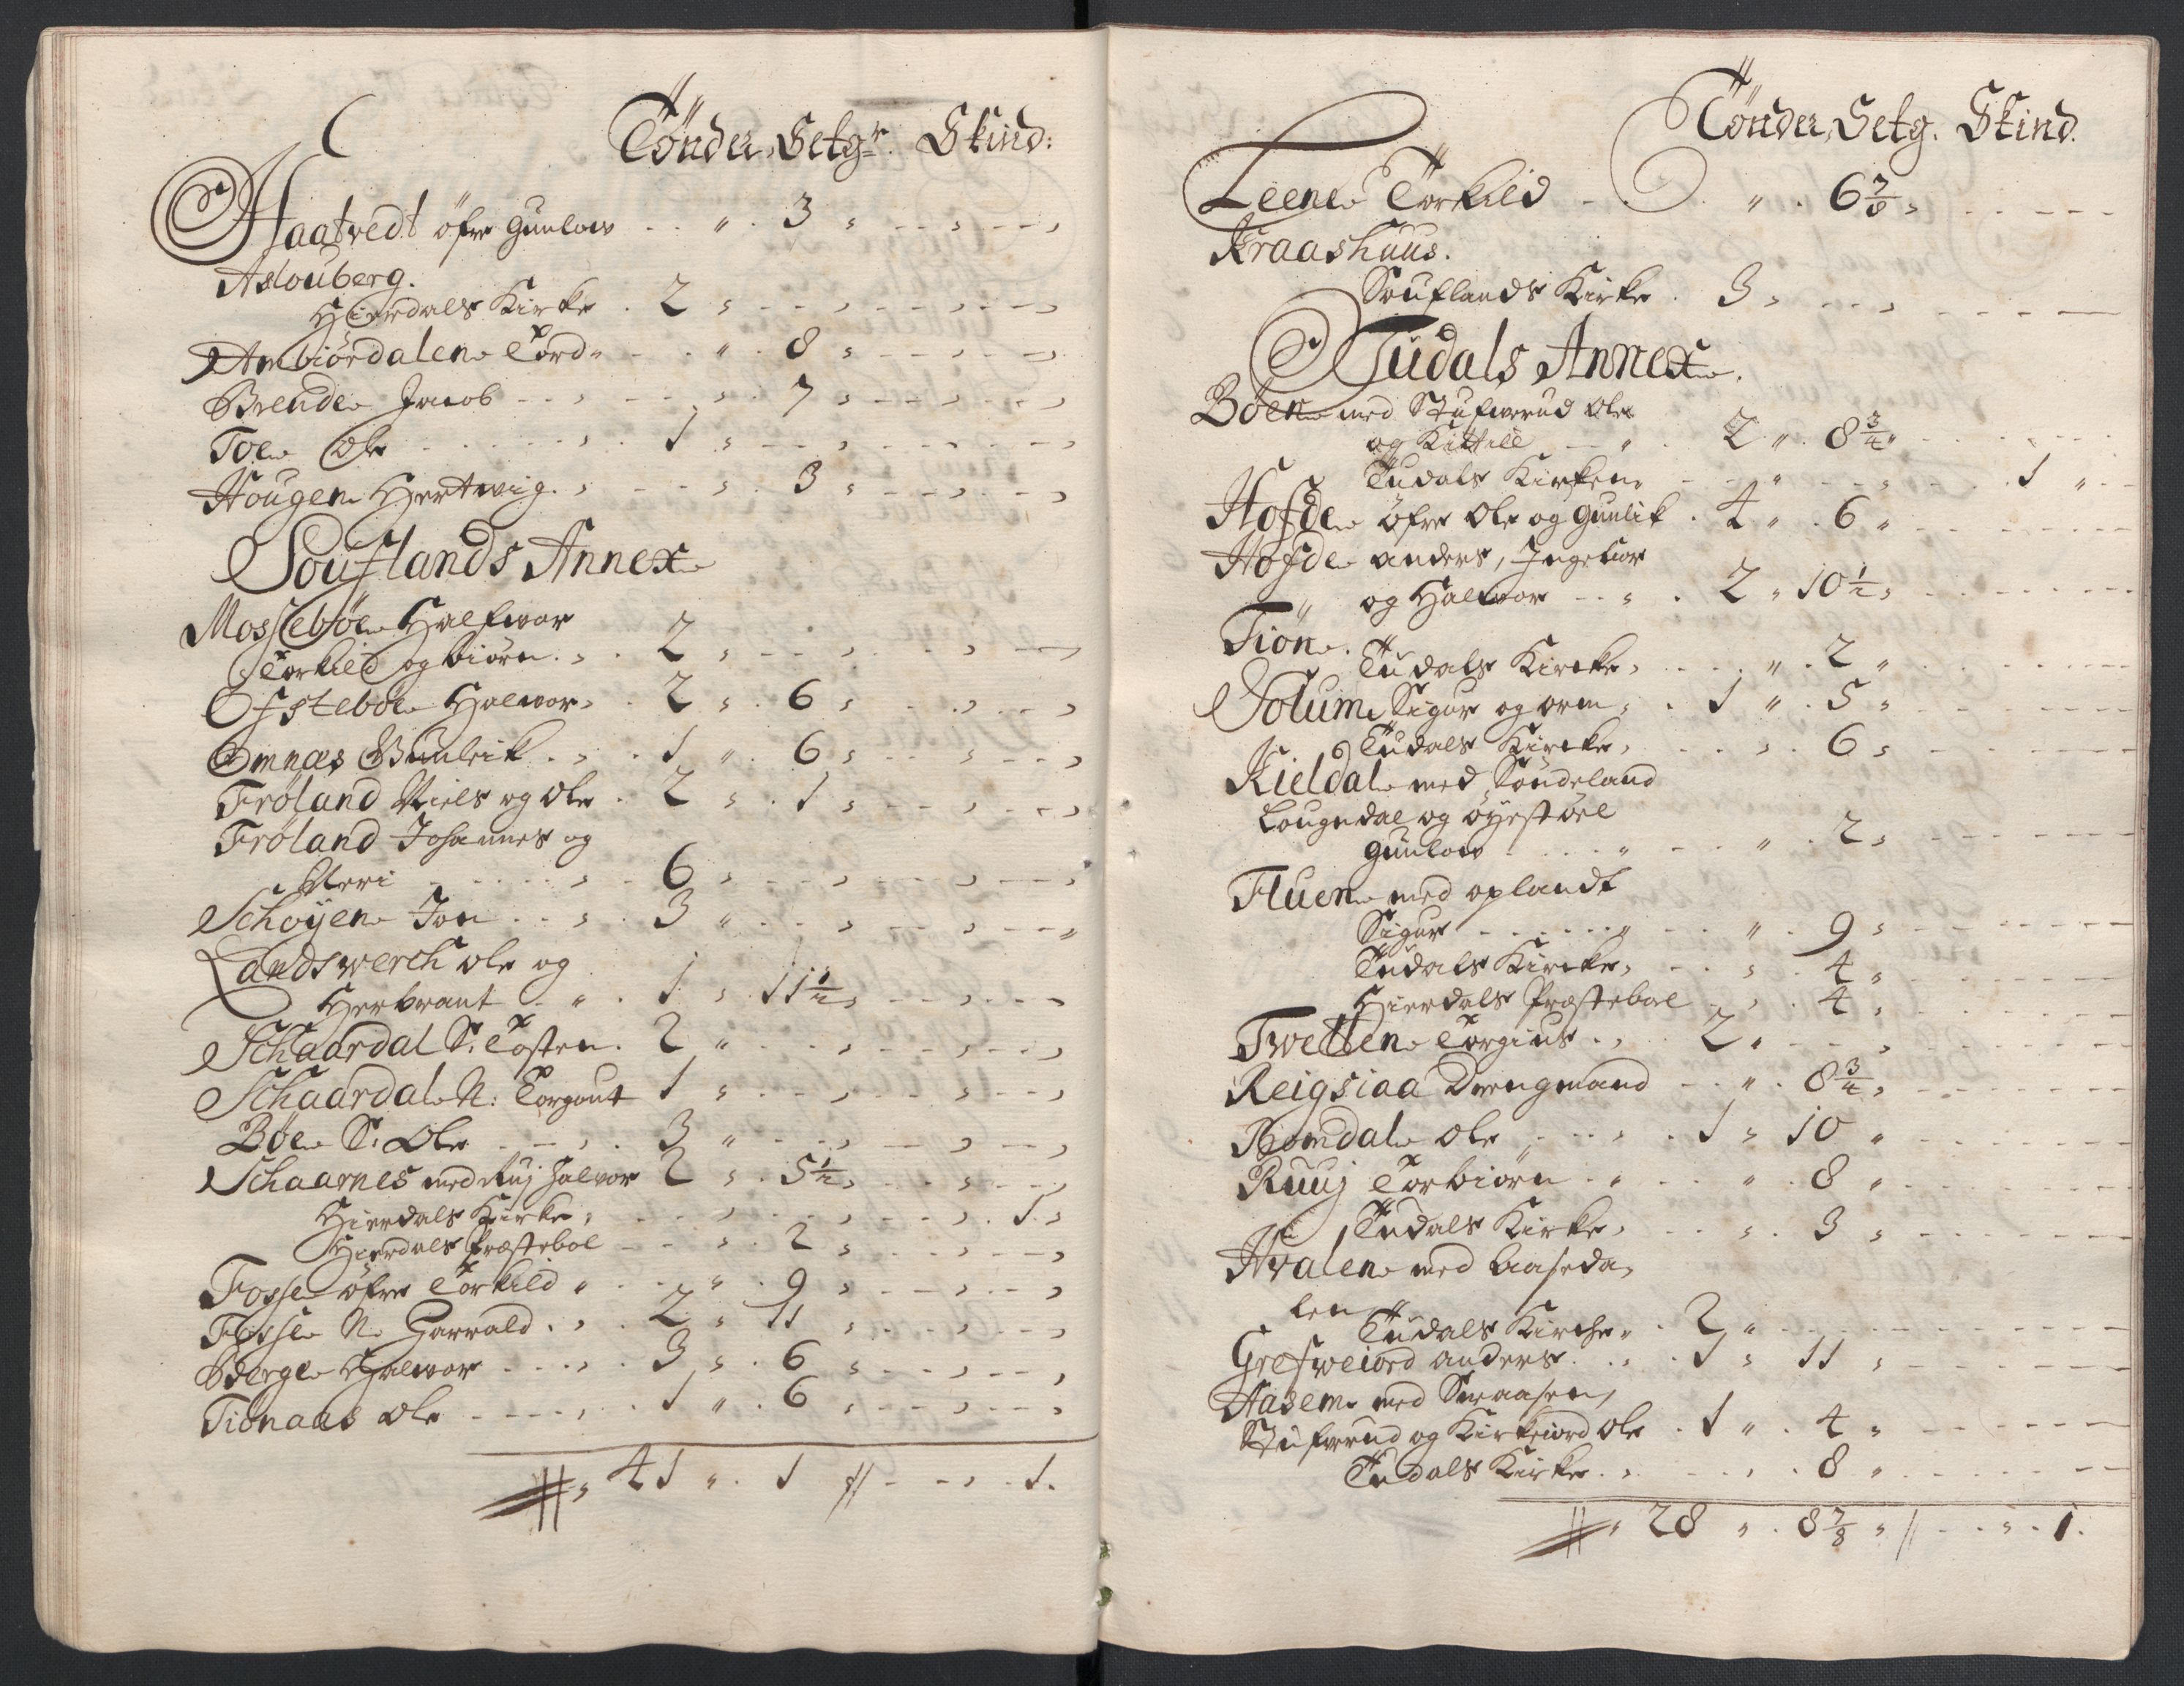 Tönder, Setgr. Skind:
Haatvedt öfre Gunlow . . " . 3 "
Aslouberg.
Hierdals Kirke . 2 "
Ambiördalen Tord . . " . 8 "
Brende Jacob . . . 7 "
Toe Ole . . . 1 "
Hougen Hertwig . . . 3 "
Souflands Annex
Mossebøe Halfwor
Torkild og biörn . . 2 "
Ofstebøe Halwor . 2 " 6 "
Omnæs Gunleik . . 1 " 6 "
Fröland Niels og Ole . 2 " . 1 "
Fröland Johannes og
Neri . . . 6 "
Schöyen Jon . . . 3 "
Landswerch Ole og
Herbrant . . " . 1 " 11½ "
Schaardal S: Tosten . 2 "
Schaardal N: Torgout 1 "
Böe S: Ole . . . 3 "
Schaarnes med Ruj Halvor 2 " . 5½ "
Hierdals Kirke, . . . 1 "
Hierdals Præstebol . . . 2 "
Fosse öfre Torkild " . . " . 9 "
Fosse N: Harrald . . . 2 " 11 "
Berge Halwor . . . 3 " . 6 "
Tiönaas Ole . . . 1 " . 6 "
" 41 " . 1 // - - - 1.
Tönder, Setg. Skind.
Leene Torkild . . " . 6 7/8 "
Kraashuus.
Souflands Kirke . 3 "
Tudals Annex.
Böen med Stufwerud Ole
og Kittill . . " . 2 " . 8¾ "
Tudals Kirken . . . 1 "
Hofde öfre Ole og Gunlik . 4 " . 6 "
Hofde anders, Ingebor
og Halwor . . " . 2 " 10½ "
Tiön.
Tudals Kircke, . . " . 2 "
Solum Sigur og orm, . 1 " . 5 "
Tudals Kircke, . . . 6 "
Kieldal med Sönderland
Lougndal og öyestöel
Gunlow . . . " . . " . 2 "
Fluen med oplandt
Sigur . . . " . . " . 9 "
Tudals Kircke, . . " . 4 "
Hierdals Præstebol . . . 4 "
Twetten Torgius . . 2 "
Reigsiaa Drengmand . . " . 8¾ "
Bomdal Ole . . . 1 " 10 "
Ruuj Torbiörn . " . . " . 8 "
Tudals Kirke, . . " . 3 "
Hvalen med Aaseda,
len
Tudals Kirche, . 2 "
Grefweiord anders . . . 1 " 11 "
Aasem med Sneaasen,
Stufwerud og Kirkeiord Ole . 1 " . 4 "
Tudals Kirke . . . 8 "
" 28 " . 8 7/8 " // - - " . 1.